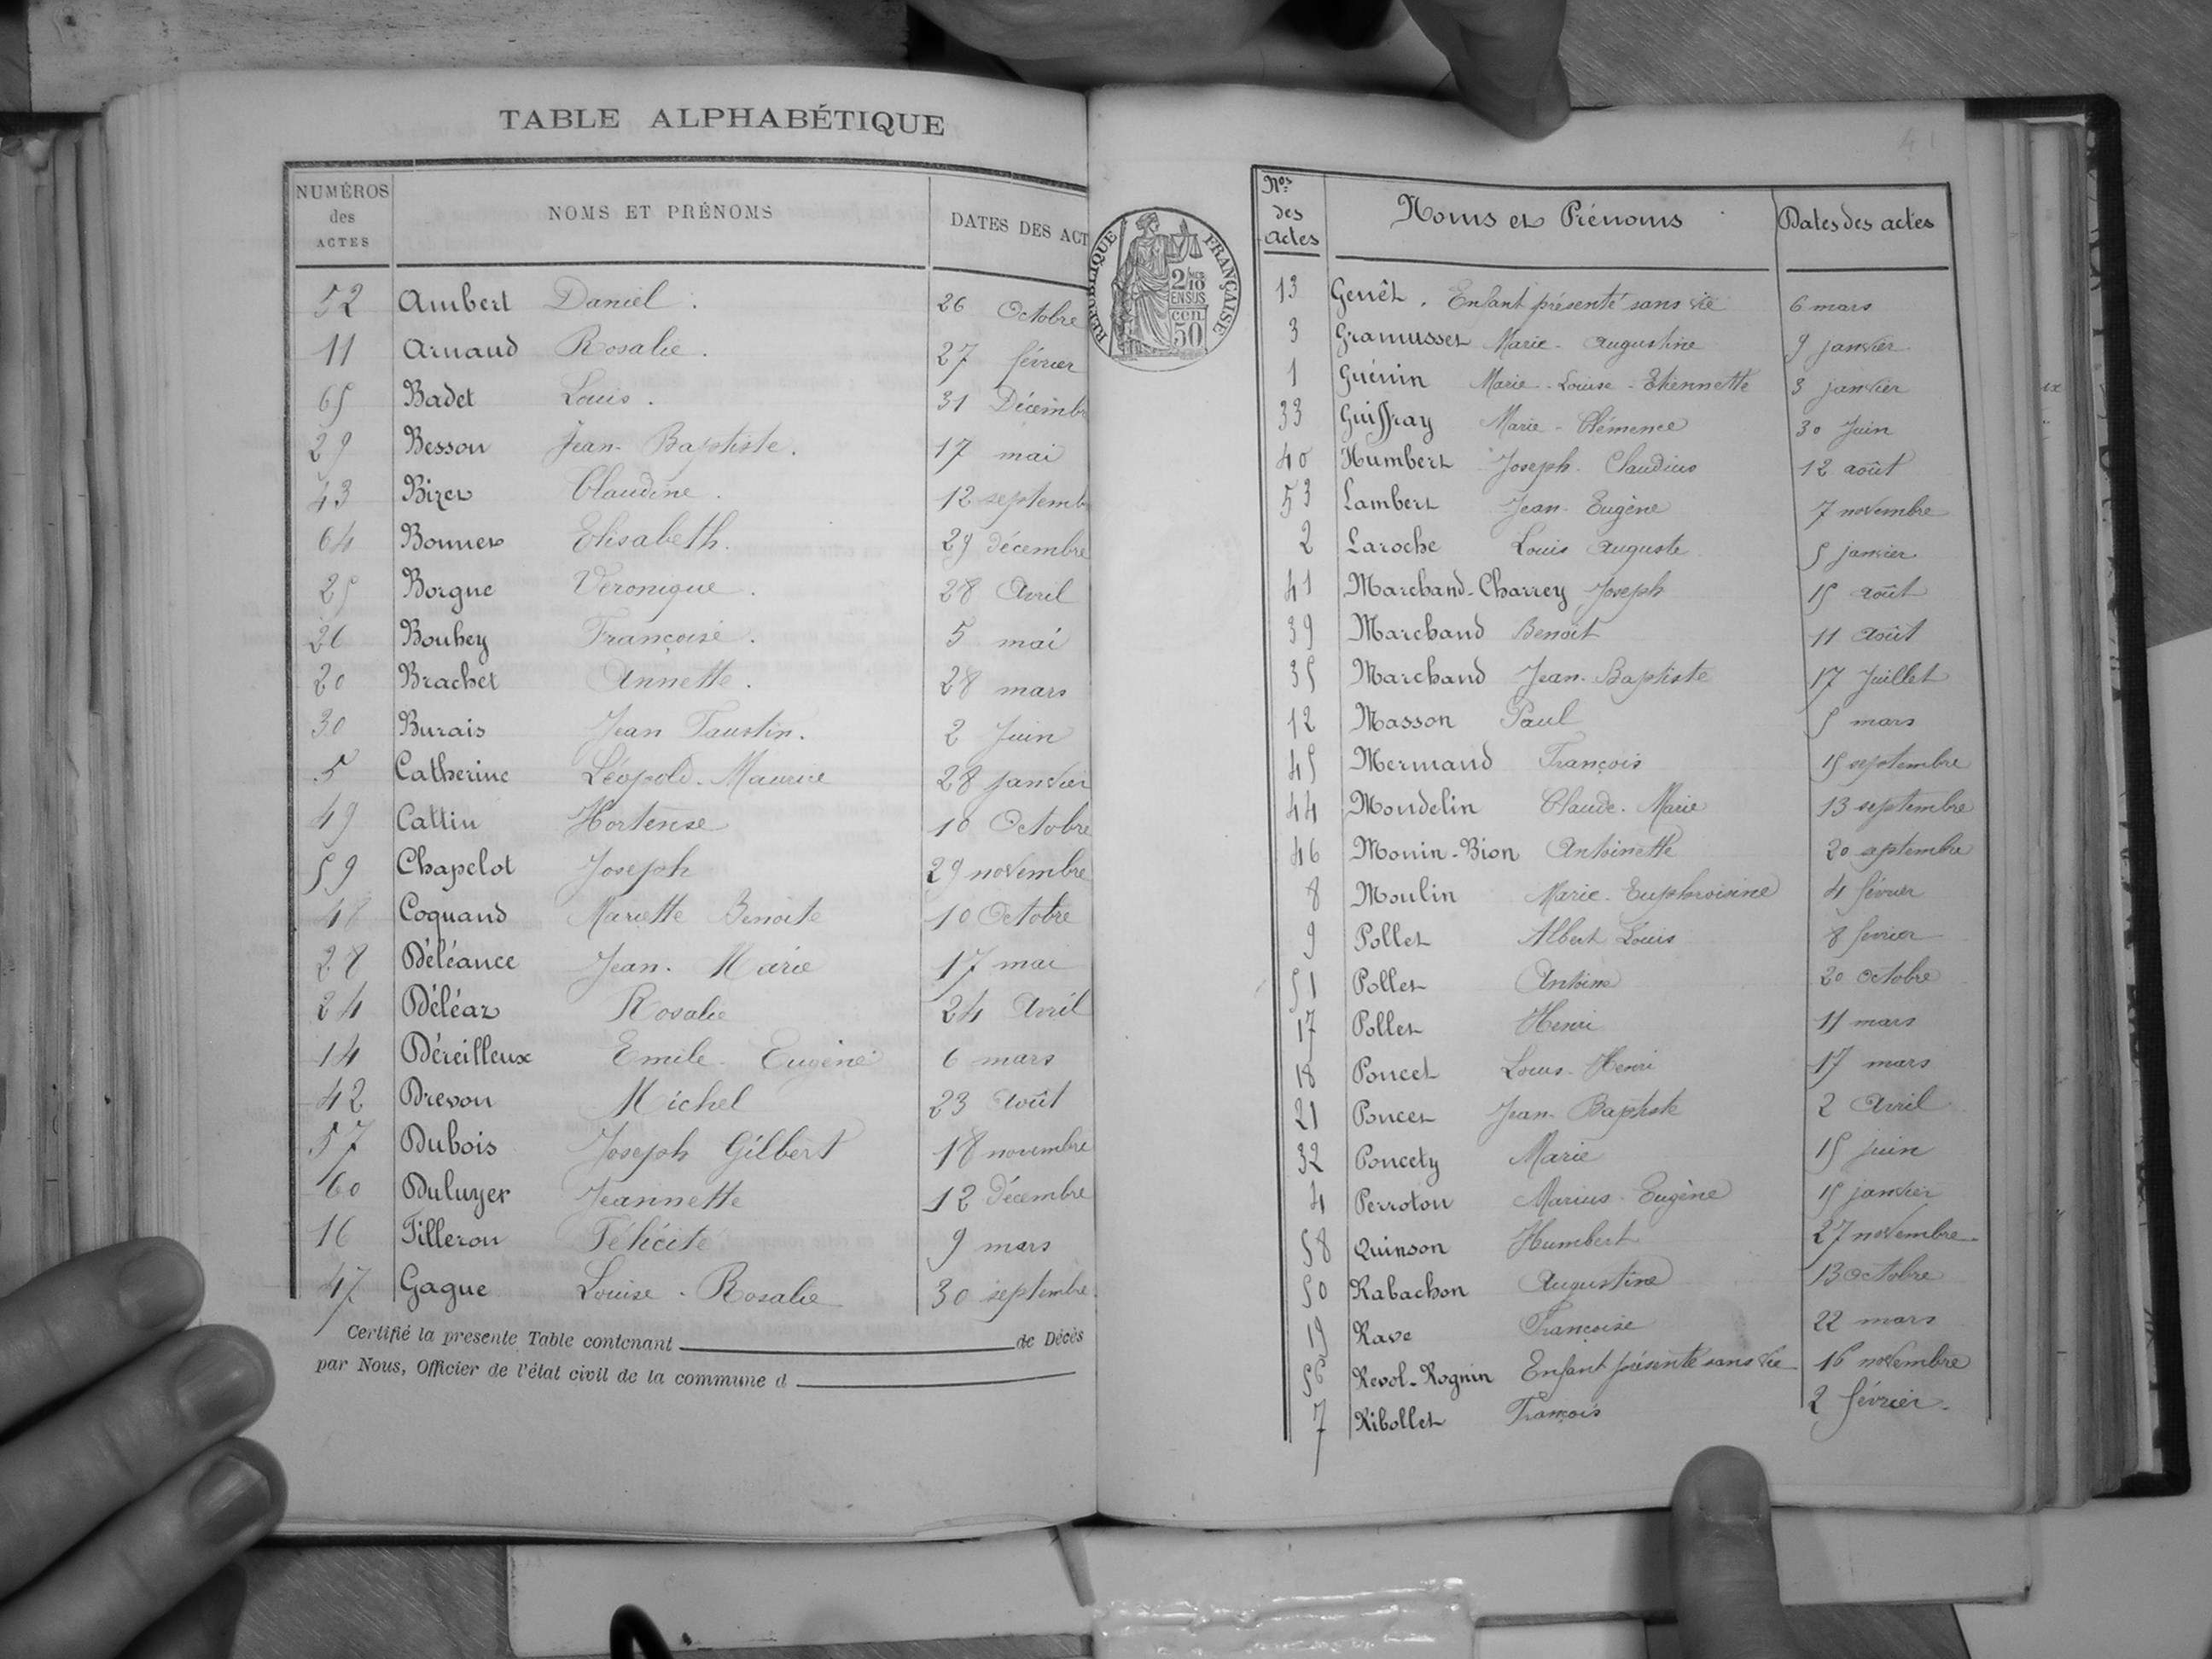 TABLE ALPHABÉTIQUE
NUMÉROS des ACTES NOMS ET PRÉNOMS DATES DES ACT
52 Ambert Daniel. 26 Octobre
11 Arnaud Rosalie. 27 février
65 Badet Louis. 31 Décembr
29 Besson Jean-Baptiste. 17 mai
43 Bizet Claudine. 12 septemb
64 Bonnet Elisabeth. 29 décembre
25 Borgne Véronique. 28 Avril
26 Bouhey Françoise. 5 mai
20 Brachet Annette. 28 mars
30 Burais Jean Faustin. 2 Juin
5 Catherine Léopold-Maurice 28 janvier
49 Cattin Hortense 10 Octobre
59 Chapelot Joseph 29 novembre
48 Coquand Mariette Benoite 10 Octobre
28 Déléance Jean-Marie 17 mai
24 Déléaz Rosalie 24 Avril
14 Déreilleux Emile-Eugène 6 mars
42 Drevon Michel 23 Août
57 Dubois Joseph Gilbert 18 novembre
60 Duluyer Jeannette 12 Décembre
16 Filleron Félicité 9 mars
47 Gague Louise-Rosalie 30 septembre
Certifié la présente Table contenant de Décès
par Nous, Officier de l'état civil de la commune d
41
RÉPUBLIQUE FRANÇAISE
2/10 EN SUS
50 cen
Nos des actes Noms et Prénoms Dates des actes
13 Genêt. Enfant présenté sans vie 6 mars
3 Gramusset Marie-Augustine 9 janvier
1 Guérin Marie-Louise-Etiennette 3 janvier
33 Guiffray Marie-Clémence 30 Juin
40 Humbert Joseph-Claudius 12 août
53 Lambert Jean-Eugène 7 novembre
2 Laroche Louis Auguste 5 janvier
41 Marchand-Charrey Joseph 15 août
39 Marchand Benoît 11 Août
35 Marchand Jean-Baptiste 17 Juillet
12 Masson Paul 5 mars
45 Mermand François 15 septembre
44 Mondelin Claude-Marie 13 septembre
46 Monin-Bion Antoinette 20 septembre
8 Moulin Marie-Euphroisine 4 février
9 Pollet Albert Louis 8 février
51 Pollet Antoine 20 Octobre
17 Pollet Henri 11 mars
18 Poncet Louis-Henri 17 mars
21 Poncet Jean-Baptiste 2 Avril
32 Poncety Marie 15 juin
4 Perroton Marius-Eugène 15 janvier
58 Quinson Humbert 27 novembre
50 Rabachon Augustine 13 Octobre
19 Rave Françoise 22 mars
56 Revol-Rognin Enfant présenté sans vie 16 novembre
7 Ribollet François 2 février.